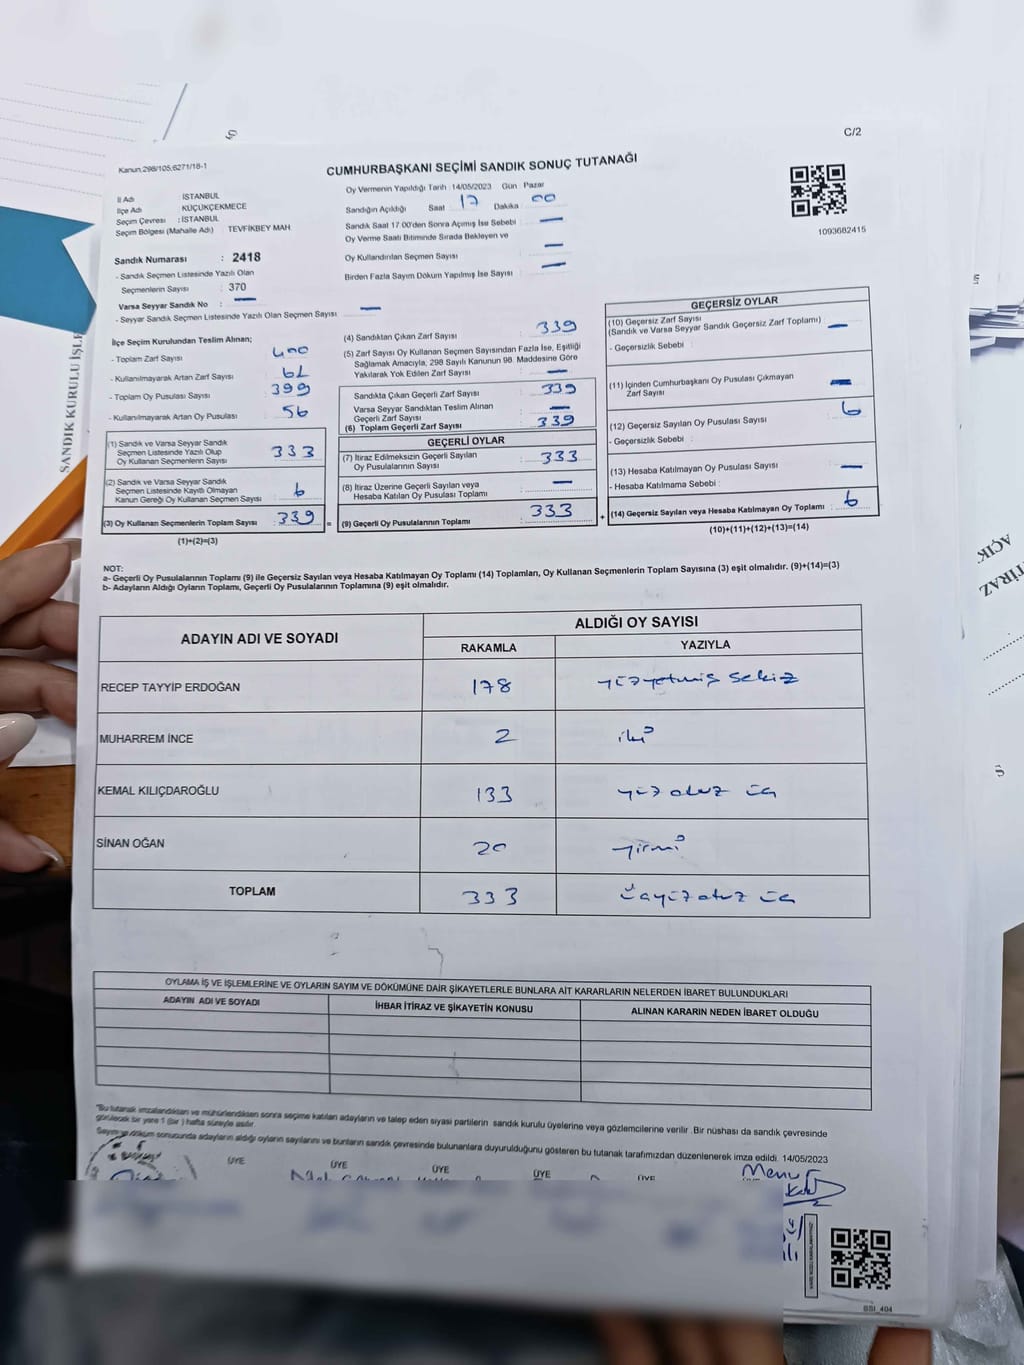 C/2
Kanun.298/105.6271/18-1
CUMHURBAŞKANI SEÇİMİ SANDIK SONUÇ TUTANAĞI
İl Adı İSTANBUL
İlçe Adı KÜÇÜKÇEKMECE
Seçim Çevresi : İSTANBUL
Seçim Bölgesi (Mahalle Adı) TEVFİKBEY MAH.
Sandık Numarası : 2418
- Sandık Seçmen Listesinde Yazılı Olan
Seçmenlerin Sayısı : 370
Varsa Seyyar Sandık No : —
- Seyyar Sandık Seçmen Listesinde Yazılı Olan Seçmen Sayısı : —
Oy Vermenin Yapıldığı Tarih :14/05/2023 Gün Pazar
Sandığın Açıldığı Saat 17 Dakika 00
Sandık Saat 17.00'den Sonra Açımış İse Sebebi : —
Oy Verme Saati Bitiminde Sırada Bekleyen ve
Oy Kullandırılan Seçmen Sayısı : —
Birden Fazla Sayım Döküm Yapılmış İse Sayısı : —
1093682415
İlçe Seçim Kurulundan Teslim Alınan;
- Toplam Zarf Sayısı : 400
- Kullanılmayarak Artan Zarf Sayısı : 61
- Toplam Oy Pusulası Sayısı : 399
- Kullanılmayarak Artan Oy Pusulası : 56
(1) Sandık ve Varsa Seyyar Sandık
Seçmen Listesinde Yazılı Olup
Oy Kullanan Seçmenlerin Sayısı : 333
(2) Sandık ve Varsa Seyyar Sandık
Seçmen Listesinde Kayıtlı Olmayan
Kanun Gereği Oy Kullanan Seçmen Sayısı : 6
(3) Oy Kullanan Seçmenlerin Toplam Sayısı : 339 =
(1)+(2)=(3)
(4) Sandıktan Çıkan Zarf Sayısı : 339
(5) Zarf Sayısı Oy Kullanan Seçmen Sayısından Fazla İse, Eşitliği
Sağlamak Amacıyla, 298 Sayılı Kanunun 98. Maddesine Göre
Yakılarak Yok Edilen Zarf Sayısı : —
Sandıkta Çıkan Geçerli Zarf Sayısı : 339
Varsa Seyyar Sandıktan Teslim Alınan
Geçerli Zarf Sayısı : —
(6) Toplam Geçerli Zarf Sayısı : 339
GEÇERLİ OYLAR
(7) İtiraz Edilmeksizin Geçerli Sayılan
Oy Pusulalarının Sayısı : 333
(8) İtiraz Üzerine Geçerli Sayılan veya
Hesaba Katılan Oy Pusulası Toplamı : —
(9) Geçerli Oy Pusulalarının Toplamı : 333 +
GEÇERSİZ OYLAR
(10) Geçersiz Zarf Sayısı
(Sandık ve Varsa Seyyar Sandık Geçersiz Zarf Toplamı) : —
- Geçersizlik Sebebi :
(11) İçinden Cumhurbaşkanı Oy Pusulası Çıkmayan
Zarf Sayısı : —
(12) Geçersiz Sayılan Oy Pusulası Sayısı : 6
- Geçersizlik Sebebi :
(13) Hesaba Katılmayan Oy Pusulası Sayısı : —
- Hesaba Katılmama Sebebi :
(14) Geçersiz Sayılan veya Hesaba Katılmayan Oy Toplamı : 6
(10)+(11)+(12)+(13)=(14)
NOT:
a- Geçerli Oy Pusulalarının Toplamı (9) ile Geçersiz Sayılan veya Hesaba Katılmayan Oy Toplamı (14) Toplamları, Oy Kullanan Seçmenlerin Toplam Sayısına (3) eşit olmalıdır. (9)+(14)=(3)
b- Adayların Aldığı Oyların Toplamı, Geçerli Oy Pusulalarının Toplamına (9) eşit olmalıdır.
ADAYIN ADI VE SOYADI ALDIĞI OY SAYISI
RAKAMLA YAZIYLA
RECEP TAYYİP ERDOĞAN 178 yüzyetmiş sekiz
MUHARREM İNCE 2 iki
KEMAL KILIÇDAROĞLU 133 yüz otuz üç
SİNAN OĞAN 20 yirmi
TOPLAM 333 üçyüz otuz üç
OYLAMA İŞ VE İŞLEMLERİNE VE OYLARIN SAYIM VE DÖKÜMÜNE DAİR ŞİKAYETLERLE BUNLARA AİT KARARLARIN NELERDEN İBARET BULUNDUKLARI
ADAYIN ADI VE SOYADI İHBAR İTİRAZ VE ŞİKAYETİN KONUSU ALINAN KARARIN NEDEN İBARET OLDUĞU
"Bu tutanak imzalandıktan ve mühürlendikten sonra seçime katılan adayların ve talep eden siyasi partilerin sandık kurulu üyelerine veya gözlemcilerine verilir .Bir nüshası da sandık çevresinde
görülecek bir yere 1 (bir ) hafta süreyle asılır.
Sayım ve döküm sonucunda adayların aldığı oyların sayılarını ve bunların sandık çevresinde bulunanlara duyurulduğunu gösteren bu tutanak tarafımızdan düzenlenerek imza edildi. 14/05/2023
ÜYE ÜYE ÜYE ÜYE ÜYE
BSI_404
SANDIK KURULU İŞLE
AÇIK